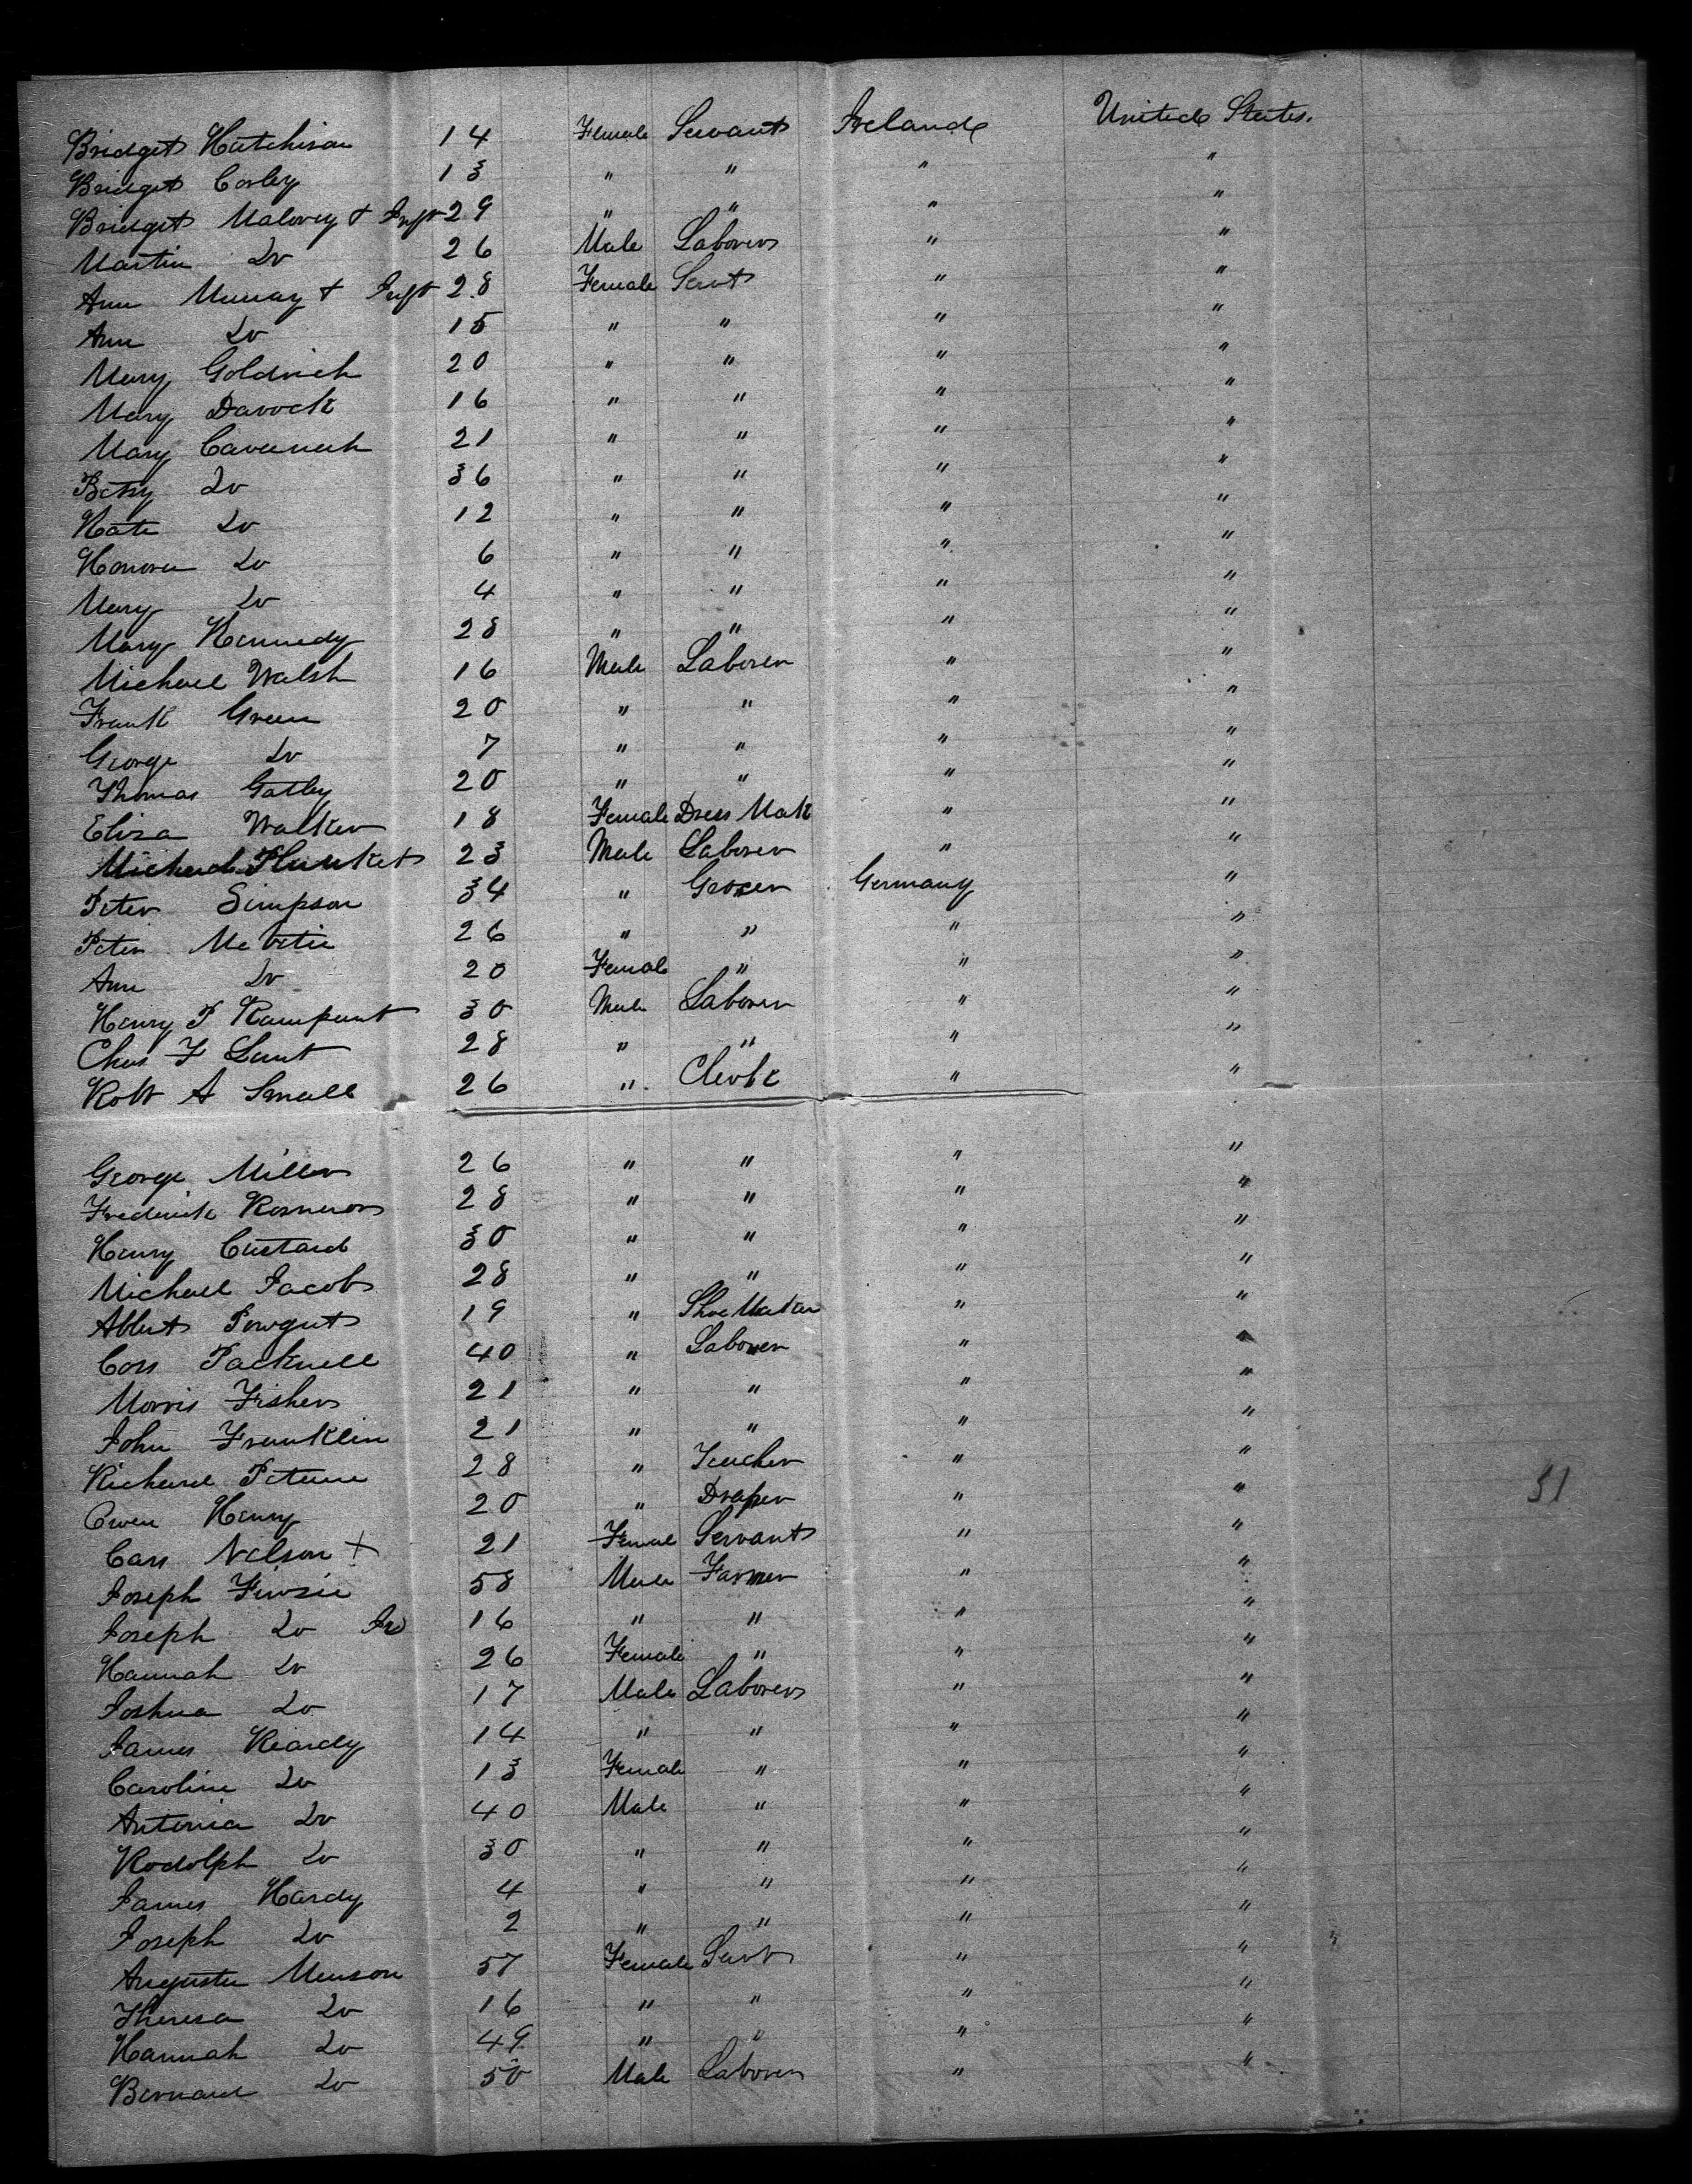 Bridget Hutchison 14 Female Servant Ireland United States.
Bridget Corley 13 " " " "
Bridget Malovey + Inft 29 " " " "
Martin Do 26 Male Laborer " "
Ann Murray + Inft 28 Female Servt " "
Ann Do 15 " " " "
Mary Goldrich 20 " " " "
Mary Davock 16 " " " "
Mary Cavanauh 21 " " " "
Betsy Do 36 " " " "
Kate Do 12 " " " "
Honora Do 6 " " " "
Mary Do 4 " " " "
Mary Kennedy 28 " " " "
Michael Walsh 16 Male Laborer " "
Frank Green 20 " " " "
George Do 7 " " " "
Thomas Gatley 20 " " " "
Eliza Walker 18 Female Dress Mak " "
Michael Plunket 23 Male Laborer " "
Peter Simpson 34 " Grocer Germany "
Peter 26 " " " "
Ann Do 20 Female " " "
Henry P Rampant 30 Male Laborer " "
Chas F Lant 28 " " " "
Robt A Small 26 " Clerk " "
George Miller 26 " " " "
Frederick 28 " " " "
Henry Custard 30 " " " "
Michael Jacobs 28 " " " "
Albert 19 " Shoe Maker " "
Packnell 40 " Laborer " "
Morris Fisher 21 " " " "
John Franklin 21 " " " "
Richard 28 " Teacher " "
Owen Henry 20 " Draper " "
Nelson + 21 Female Servant " "
Joseph 58 Male Farmer " "
Joseph Do Jr 16 " " " "
Hannah Do 26 Female " " "
Joshua Do 17 Male Laborer " "
James Reardy 14 " " " "
Caroline Do 13 Female " " "
Antonia Do 40 Male " " "
Rodolph Do 30 " " " "
James Hardy 4 " " " "
Joseph Do 2 " " " "
Augusta Munson 57 Female Servt " "
Theresa Do 16 " " " "
Hannah Do 49 " " " "
Bernard Do 50 Male Laborer " "
31